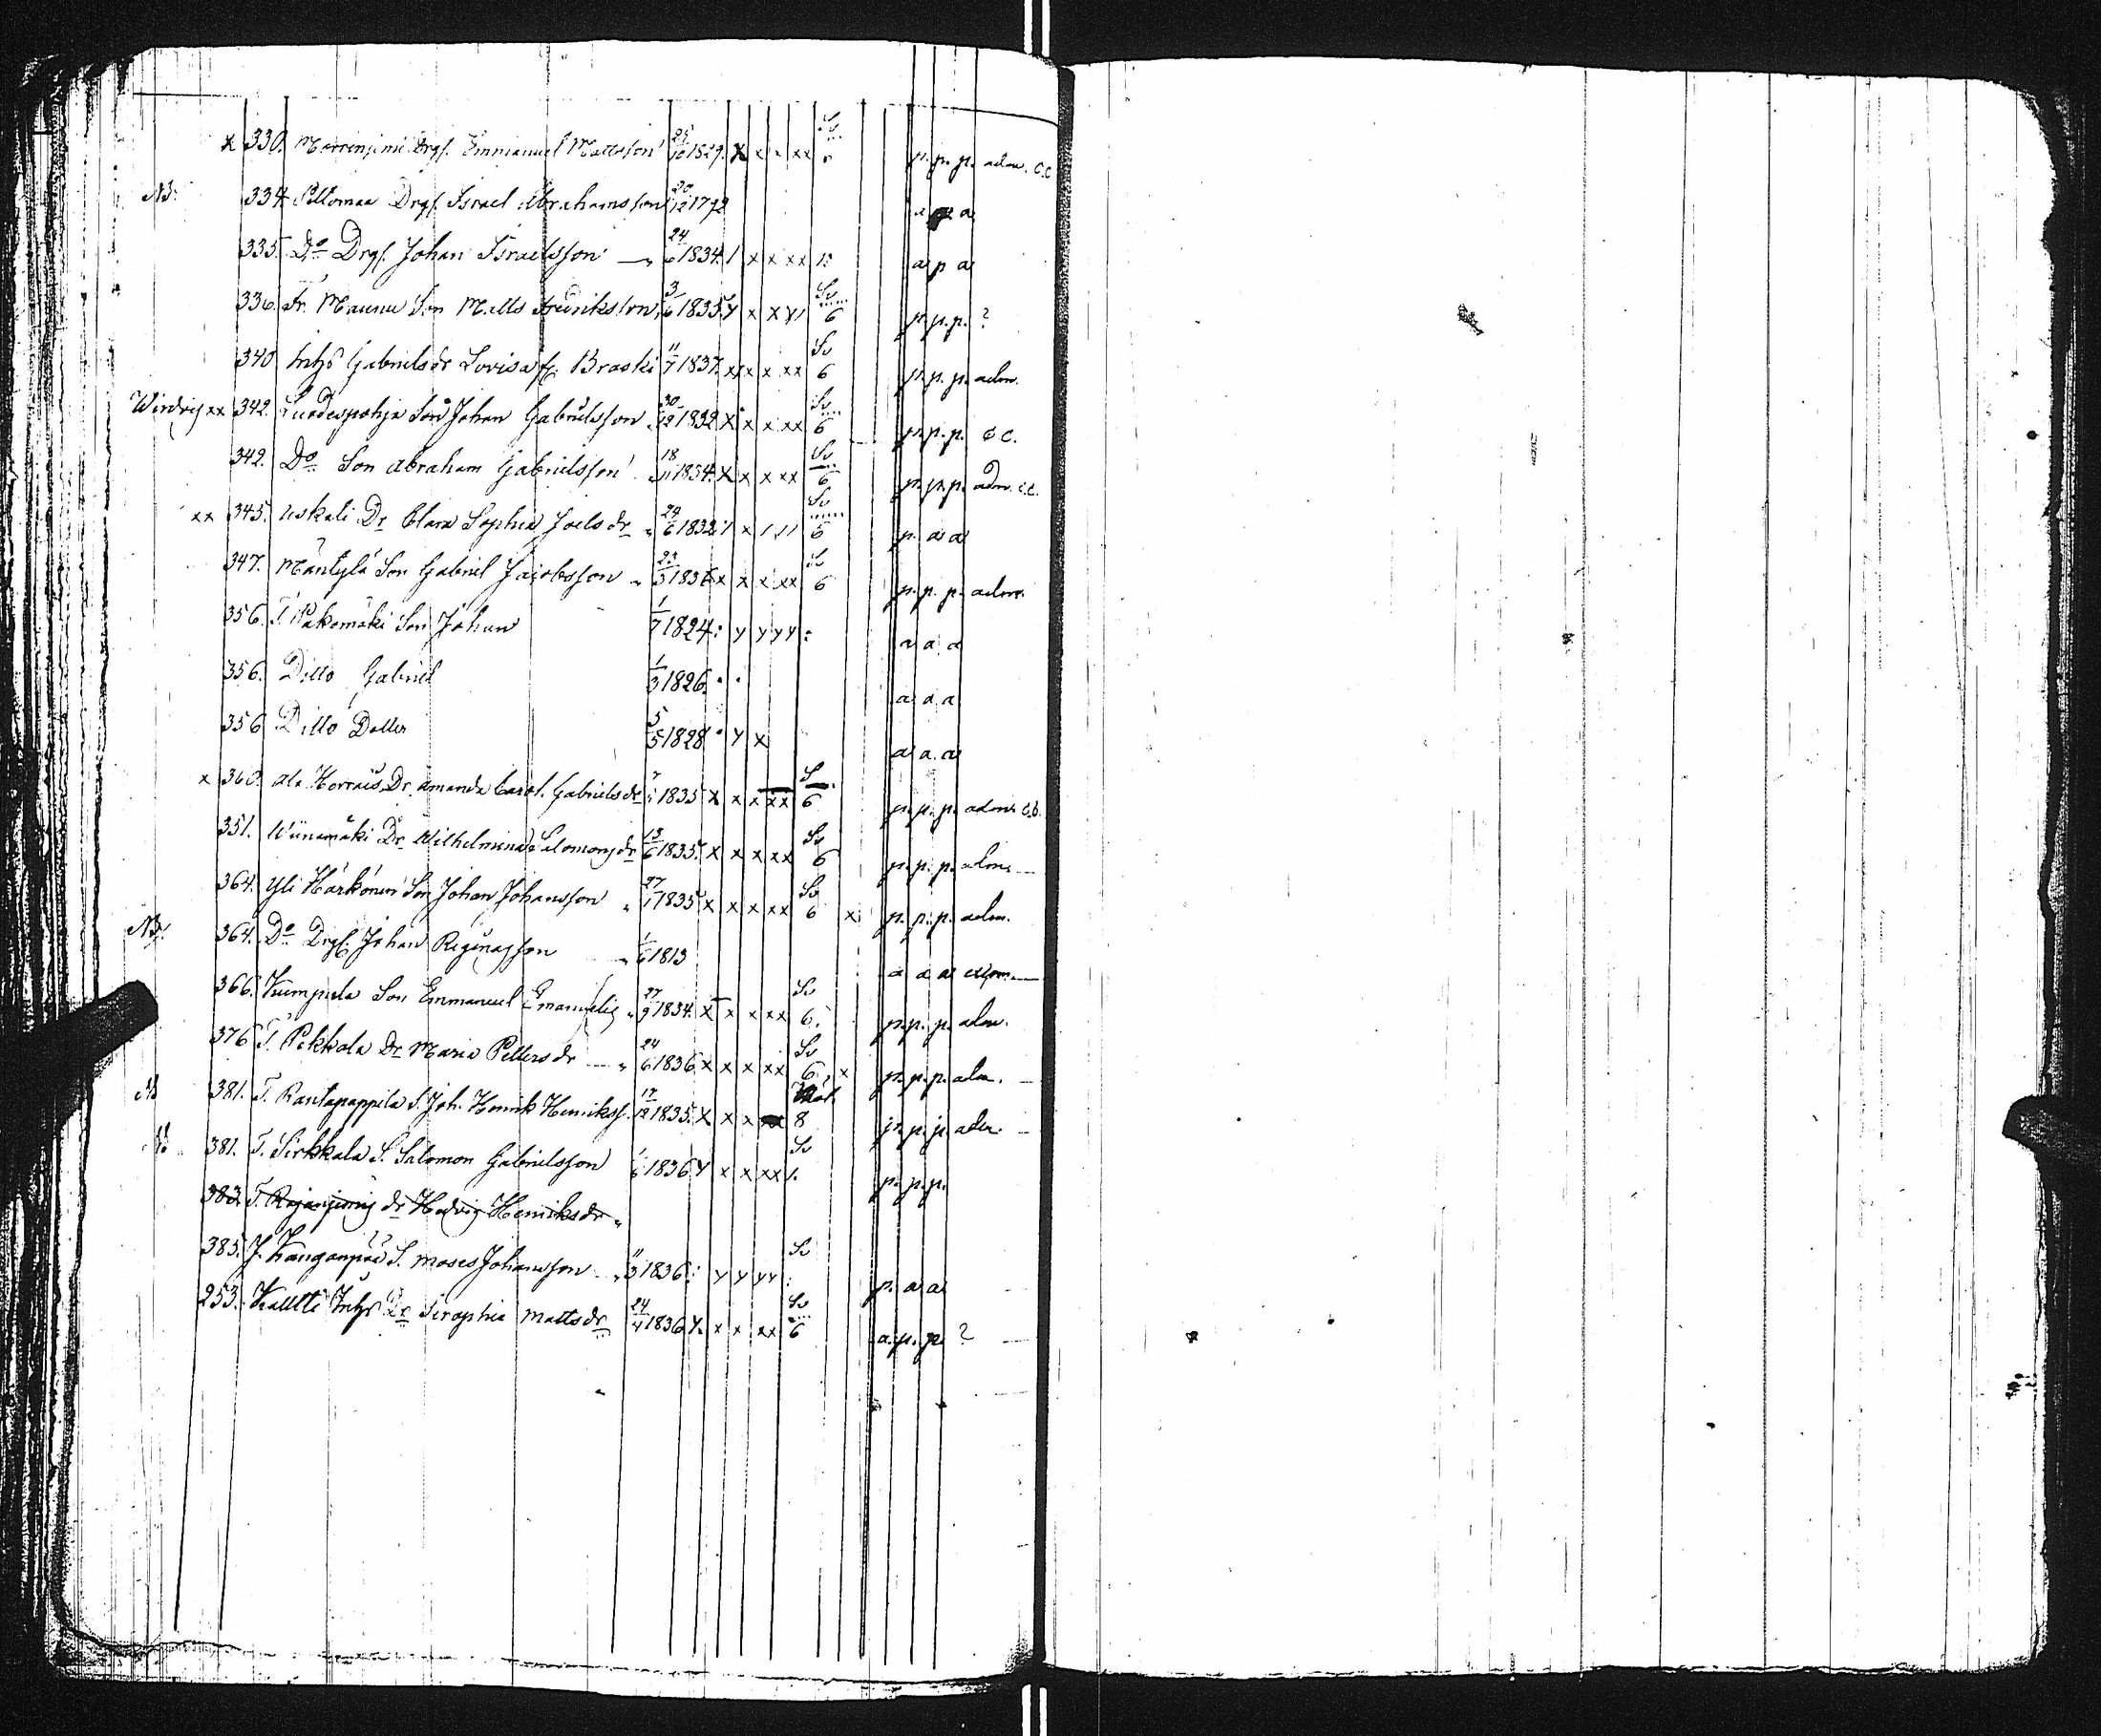 x 330. Drgs. Emmanuel Mattsson 25/10 1829. x x x xx p. p. p. adm. c.c
NB. 334 Peltomaa Drgs. Israel Abrahamsson 20/12 1772 a a
335. Do Drgs. Johan Israelsson 24/6 1834. / x x xx 1: a p a
336. Fr. Maunu Son Matts 3/6 1835. y x x y1 Sv 6 p. p. p. ?
340 Inhs Gabrielsdr Lovisa fr. Braski 11/7 1837. xx x x xx Sv 6 p. p. p. adm.
xx 342. Luodespohja Son Johan Gabrielsson 30/12 1832 x x x xx Sv 6 p. p. p. c c.
342. Do Son Abraham Gabrielsson 18/11 1834. x x x xx Sv 6 p. p. p. adm. c.c.
xx 345. Uskali Dr Clara Sophia Joelsdr 29/6 1832 / x / // Sv 6 p. a a
347. Mäntylä Son Gabriel Jacobsson /3 1836 x x x xx Sv 6 p. p. p. adm.
356. T. Pakomäki Son Johan 1/7 1824 : y y yy : a a a
356. Ditto Gabriel 1/3 1826. · · a a a
356 Ditto 5/5 1828 · y x a a a
x 360. Ala Dr. Amanda Carol. Gabrielsdr 1835 x x x xx S 6 p. p. p. adm. c.c.
351. Wiinamäki Dr. Wilhelmina Salomonsdr 13/6 1835. x x x xx Sv 6 p. p. p. adm.
364. Yli Härkönen Son Johan Johansson 27/1 1835 x x x xx Sv 6 x p. p. p. adm.
NB. 364. Do Drgs. Johan Reginasson 1/6 1813 a a a
366. Kumpula Son Emmanuel 27/9 1834. x x x xx Sv 6. p. p. p. adm.
376 T. Pekkala Dr Maria Pettersdr 24/6 1836 x x x xx Sv 6. x p. p. p. adm.
381. T. Rantapappila S. Joh. Henrik Henrikss. 17/12 1835. x x x 8 p. p. p. adm.
381. T. Sirkkala S. Salomon Gabrielsson 1/6 1836 y x x xx 1. Sv p. p. p.
383. T. dr Hedvig Henriksdr
385. J. Kangaspää S. Moses Johansson 11/3 1836 : y y yy : Sv p. a a
253. Inhs Dr Seraphia Mattsdr 24/4 1836 y. x x xx Sv 6 a. p. p. ?